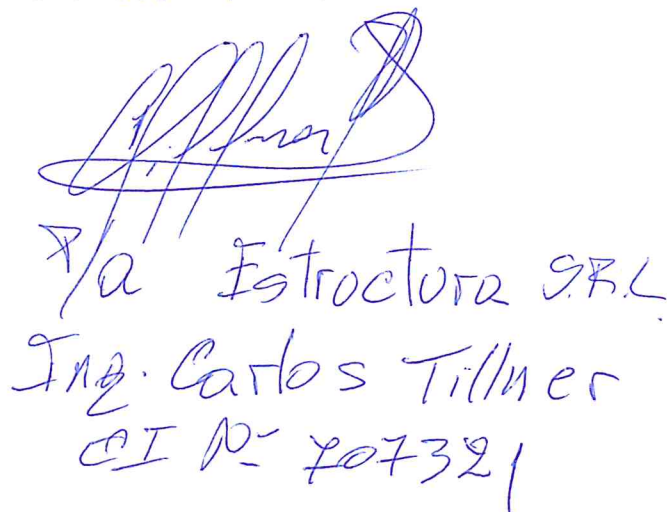 P/a Estructura S.R.L.
Ing. Carlos Tillner
CI Nº 707321